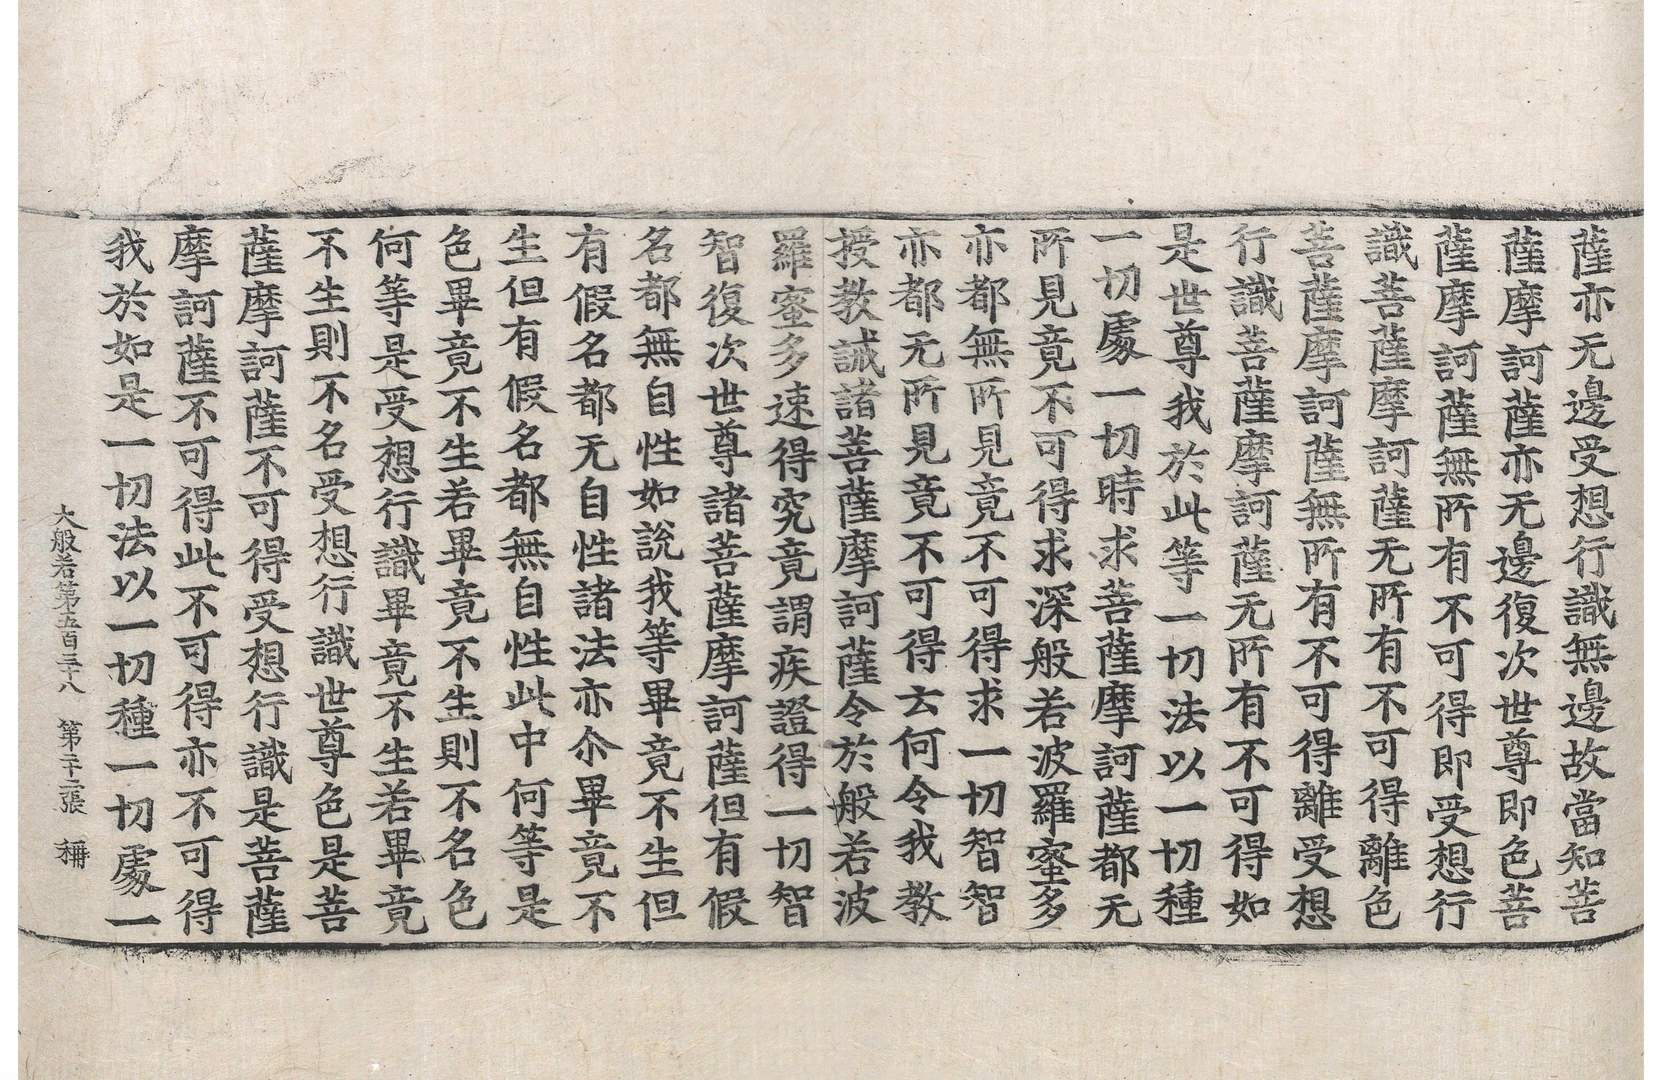 薩亦无邊受想行識無邊故當知菩
薩摩訶薩亦无邊復次世尊即色菩
薩摩訶薩無所有不可得即受想行
識菩薩摩訶薩无所有不可得離色
菩薩摩訶薩無所有不可得離受想
行識菩薩摩訶薩无所有不可得如
是世尊我於此等一切法以一切種
一切處一切時求菩薩摩訶薩都无
所見竟不可得求深般若波羅蜜多
亦都無所見竟不可得求一切智智
亦都无所見竟不可得云何令我教
授教誡諸菩薩摩訶薩令於般若波
羅蜜多速得究竟謂疾證得一切智
智復次世尊諸菩薩摩訶薩但有假
名都無自性如說我等畢竟不生但
有假名都无自性諸法亦尒畢竟不
生但有假名都無自性此中何等是
色畢竟不生若畢竟不生則不名色
何等是受想行識畢竟不生若畢竟
不生則不名受想行識世尊色是菩
薩摩訶薩不可得受想行識是菩薩
摩訶薩不可得此不可得亦不可得
我於如是一切法以一切種一切處一
大般若第五百三十八　第二十二張　稱